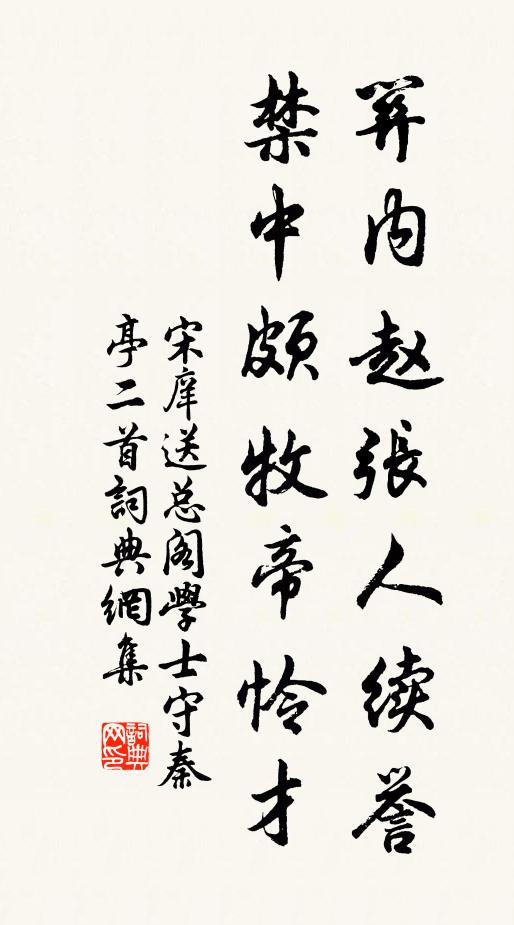 内赵張人续誉
禁中颇牧帝怜才
宋庠送总阁學士守秦
亭二首詞典網集
詞典
网印